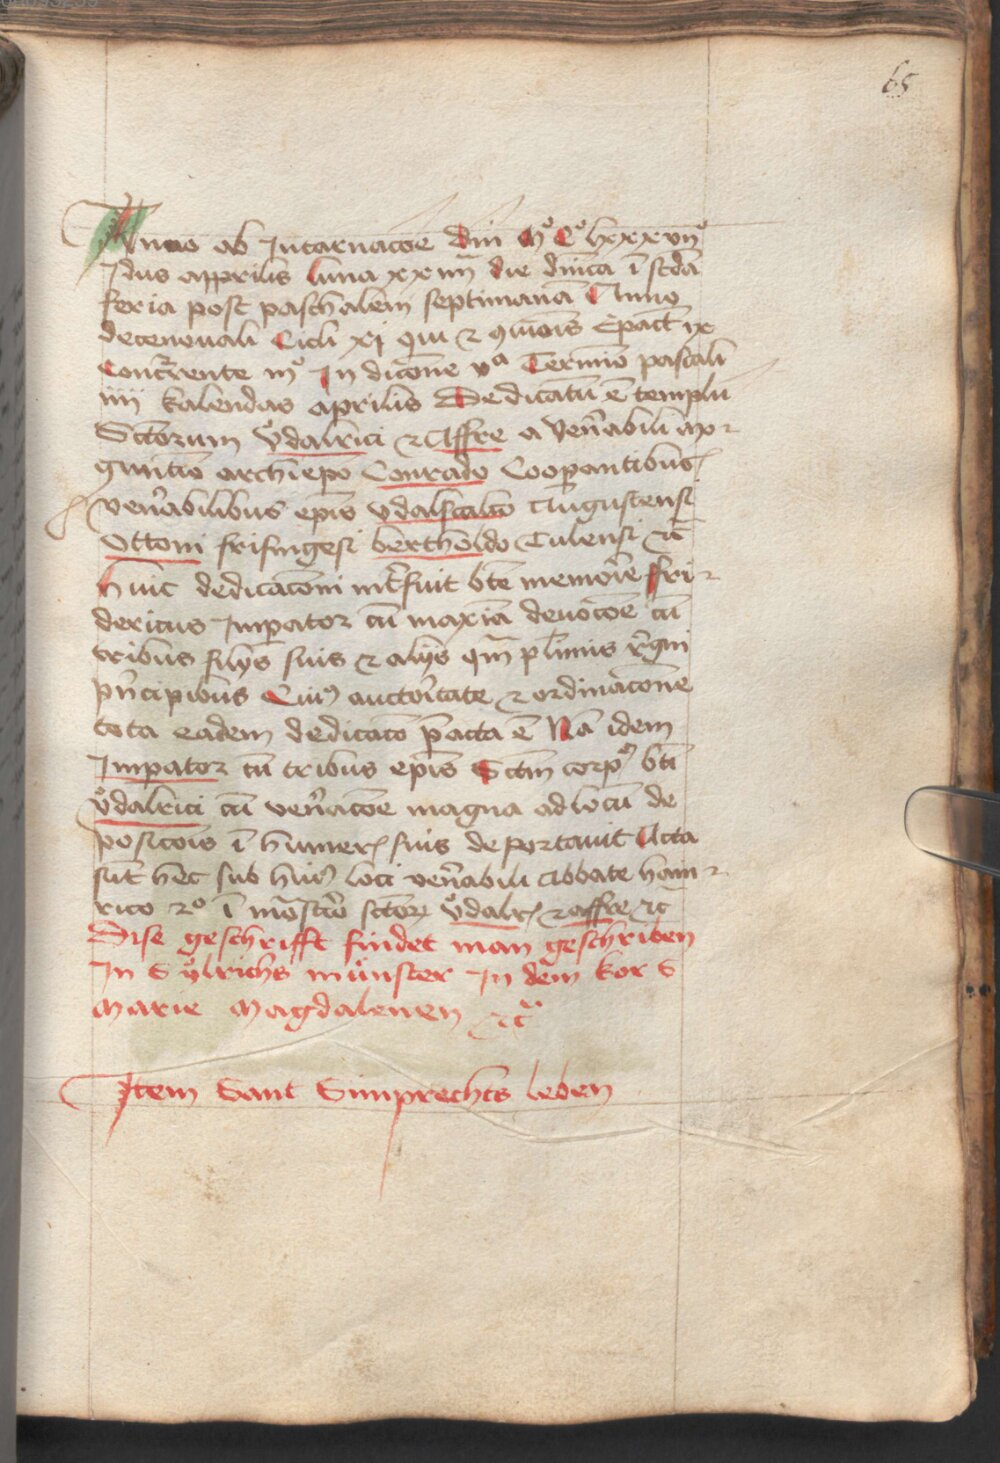 65
Anno ab Incarnac̄oe Dnī Mº Cº lxxxvijº
Idus apprilis luna xxiiij die dn̄ica ī scd̄a
feria post paschalem septimanā Anno
decennovali Cicli xj qui ⁊ ꝯmōis Epact̄ ix
Concᷣrente iijº Indicōne vᵃ Termīo pascali
iiij kalendas aprilis Dedicatū ē templū
Sctōrum vͦdalrici ⁊ Affre a ven̄abili mo-
guntīo archiepō Conrado Cooꝑantibus
ven̄abilibus epīs vdalscalco Augustensi
Ottoni frisingēsi bertholdo Tulensi ⁊c̄
huic dedicacōni int̄fuit bt̄e memorīe fri-
dericus Imꝑator cū maxīa devocōe cū
tribus filijs suis ⁊ alijs qm̄ plūmis r̄gni
pn̄cipibus Cuiꝰ auctoītate ⁊ ordinacōne
tota eadem dedicacō ꝑacta ē Nā idem
Imꝑator cū tribus epīs Sctm̄ corpꝰ bt̄i
vͦdalrici cū ven̄acōe magna ad locū de
posicōis ī humerꝭ suis deportavit Acta
sūt hec sub huiꝰ loci ven̄abili Abbate hain-
rico 2º ī mōst̄io sctōꝝ vͦdalrꝭ ⁊ affre ⁊c̄
Dise geschrifft findet man geschriben
In S vͦlrichs münster In dem kor S
Marie Magdalenen ⁊c̄
Item Sant Simprechts leben